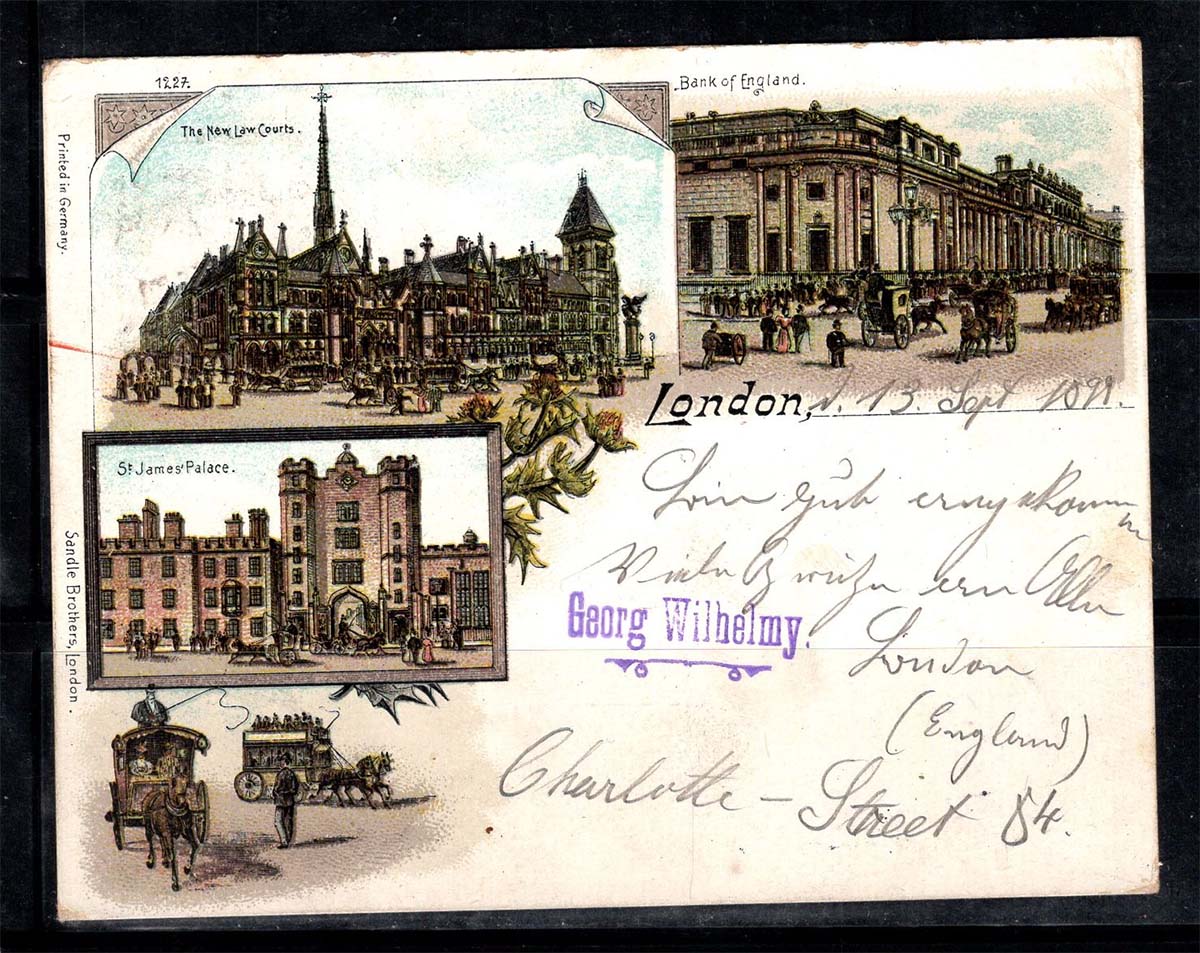 1227.
The New Law Courts.
Bank of England.
Printed in Germany.
London, d. 13. Sept 189
St. James' Palace.
Bin gut
Viele an Alle
Georg Wilhelmy.
London
(England)
Charlotte - Street 84.
Sandle Brothers, London.